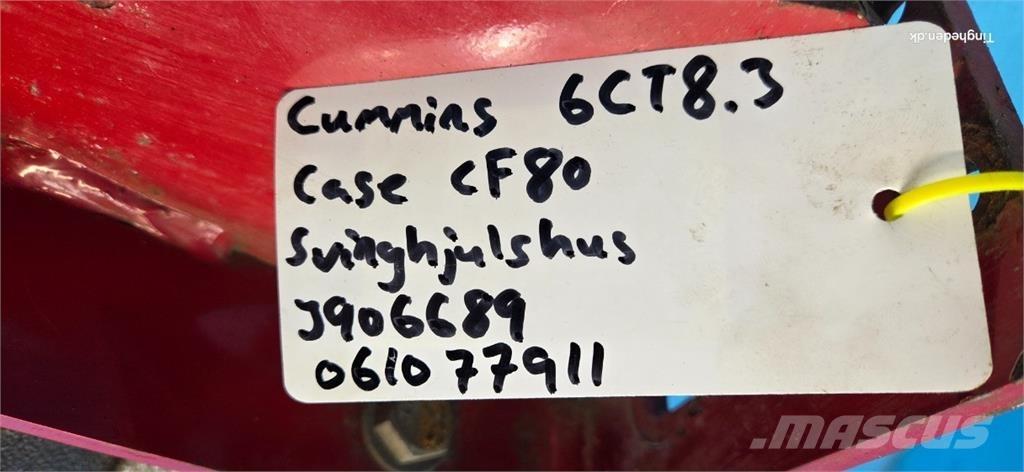 Tingheden.dk
Cummins 6CT8.3
Case CF80
Svinghjulshus
J906689
061077911
MASCUS